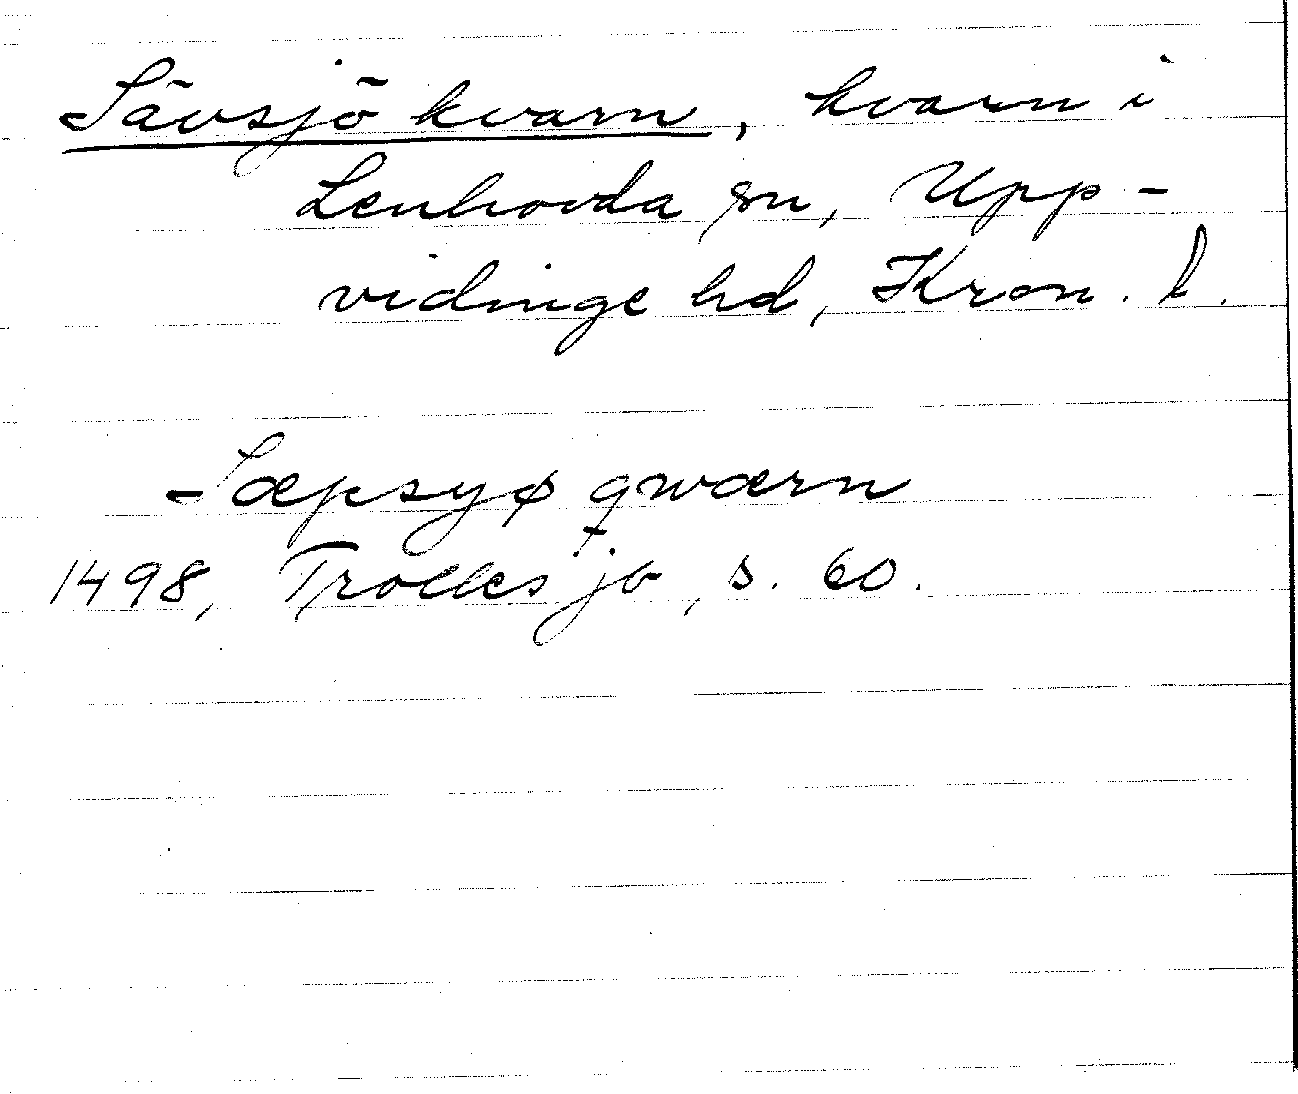 Sävsjö kvarn, kvarn i
Lenhovda sn, Upp-
vidinge hd, Kron. l.
Sæpsyø qwærn
1498, Trolles jb, s. 60.